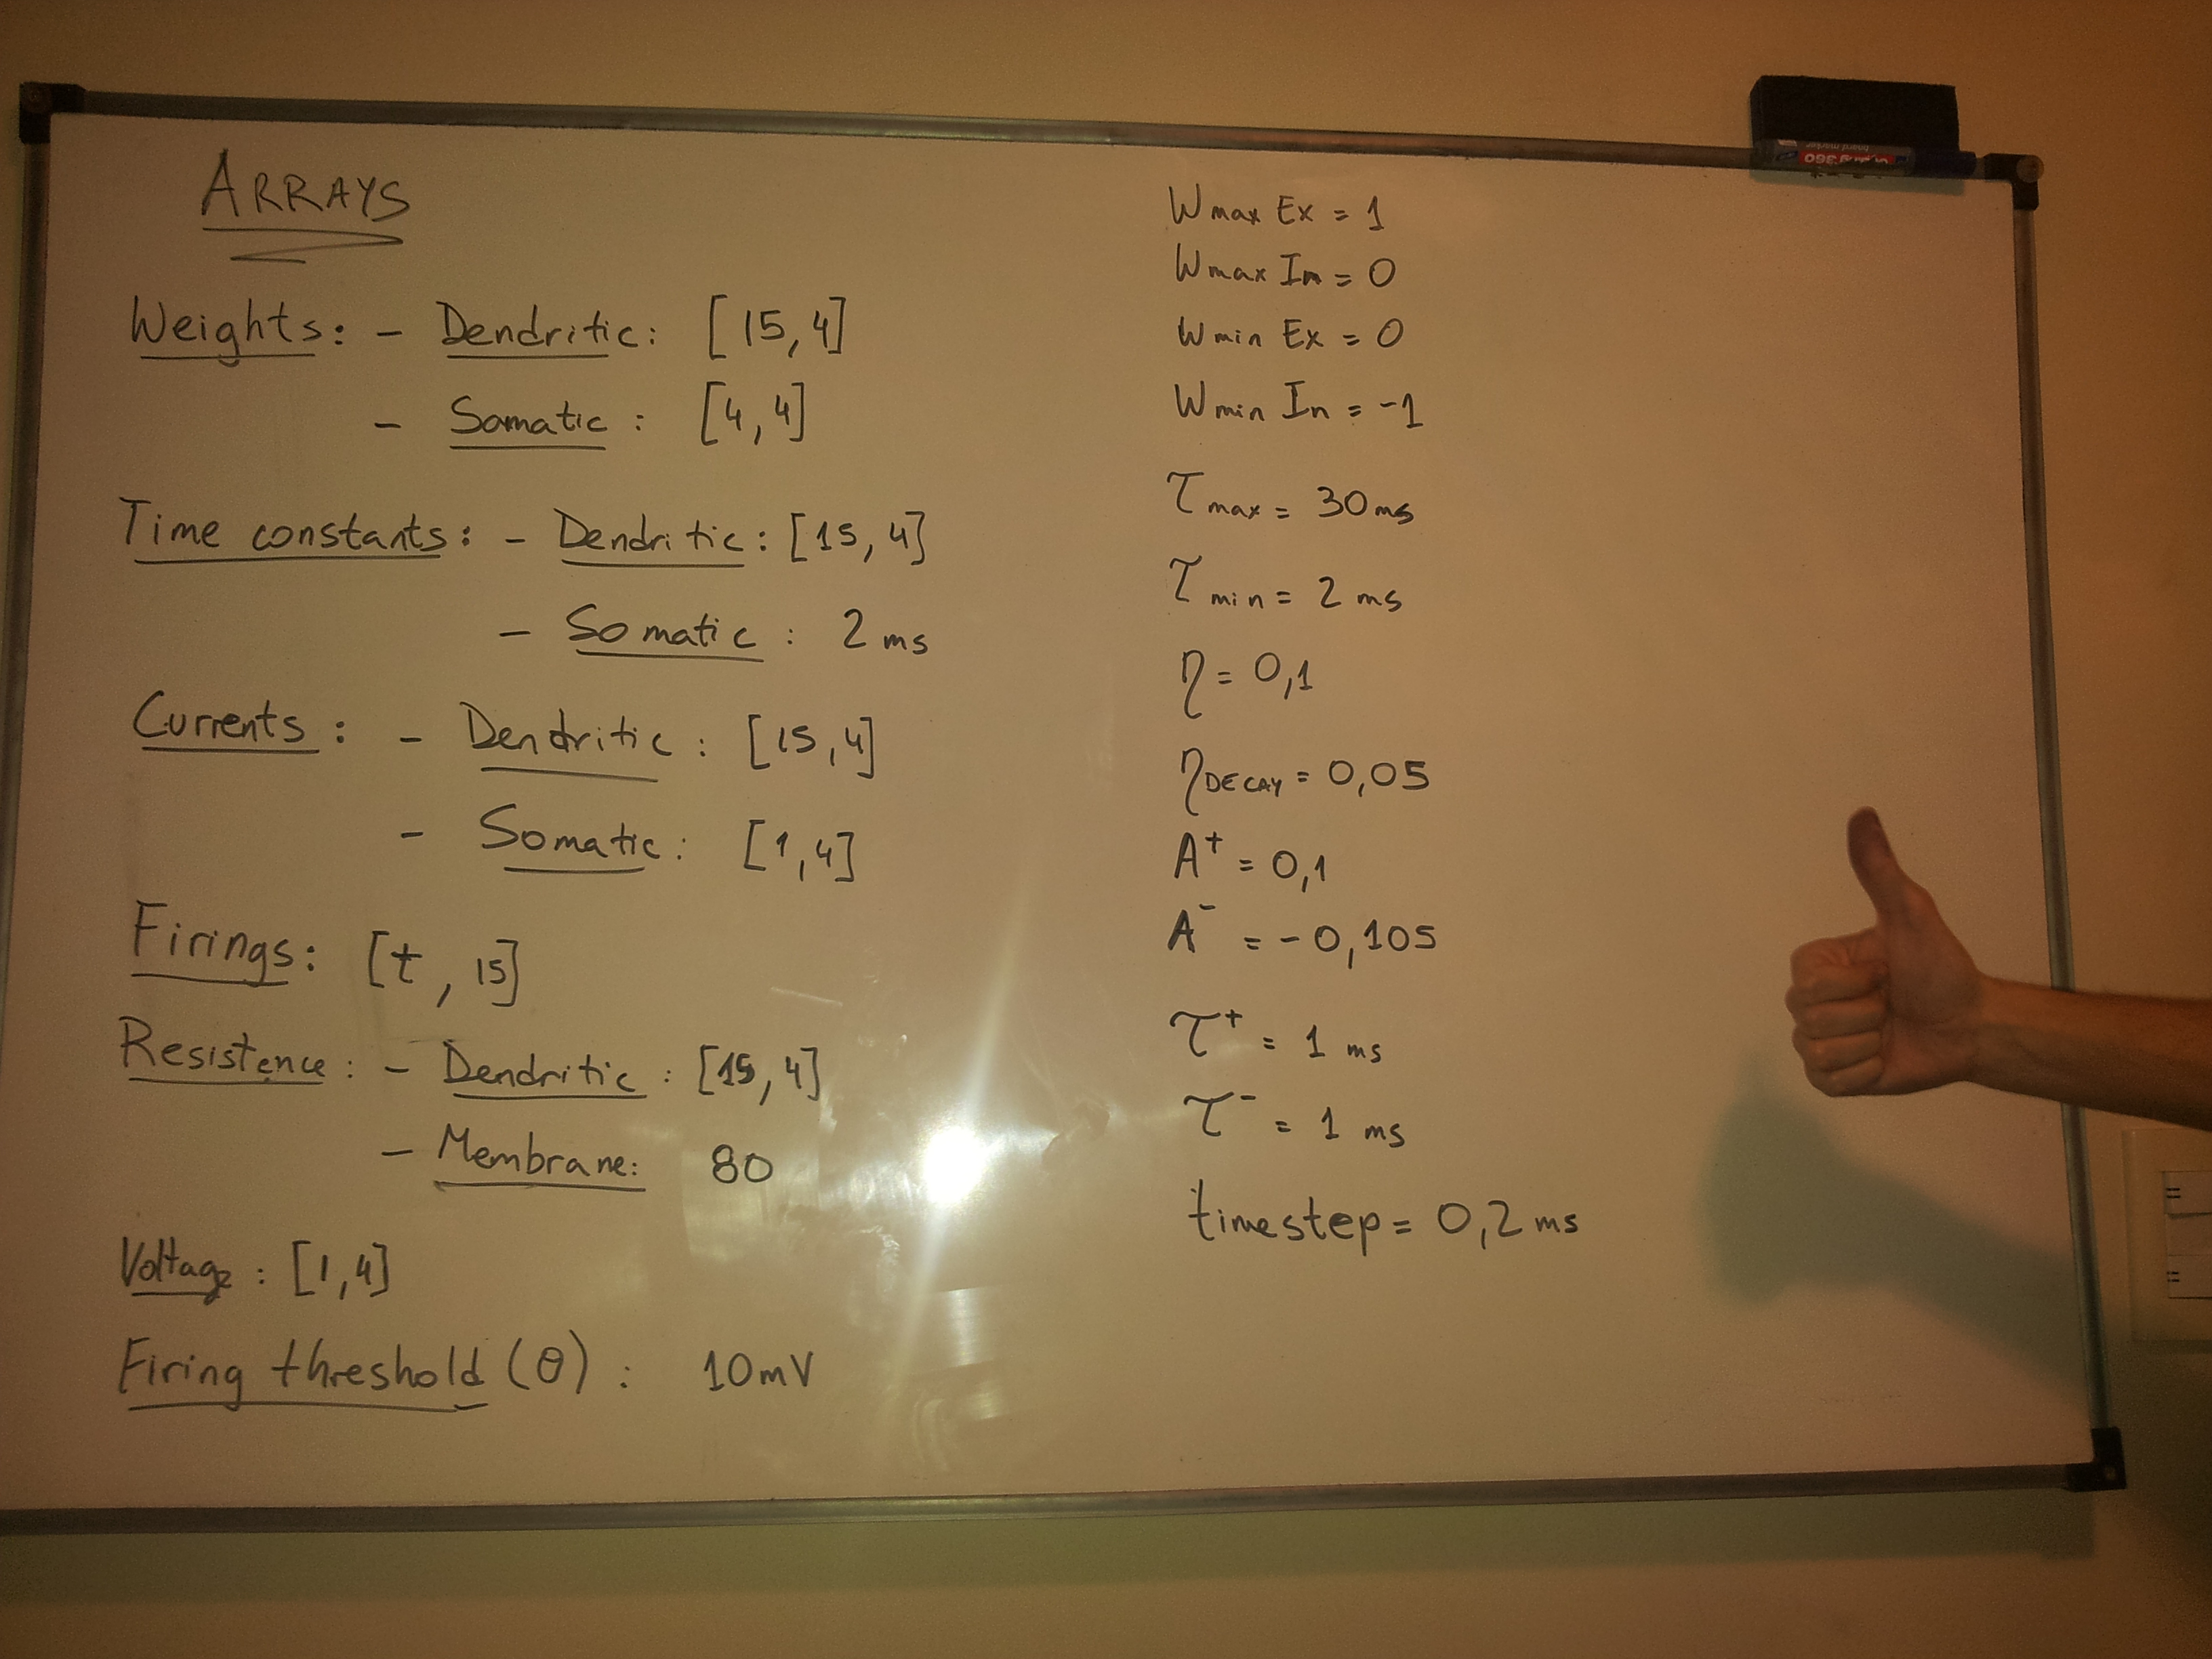 ARRAYS
Weights: - Dendritic: [15,4]
- Somatic: [4,4]
Time constants: - Dendritic: [15,4]
- Somatic: 2 ms
Currents: - Dendritic: [15,4]
- Somatic: [1,4]
Firings: [t, 15]
Resistence: - Dendritic: [15,4]
- Membrane: 80
Voltage: [1,4]
Firing threshold (θ): 10mV
Wmax Ex = 1
Wmax In = 0
Wmin Ex = 0
Wmin In = -1
τmax = 30ms
τmin = 2 ms
η = 0,1
ηDECAY = 0,05
A⁺ = 0,1
A⁻ = -0,105
τ⁺ = 1 ms
τ⁻ = 1 ms
timestep = 0,2 ms
360
board marker